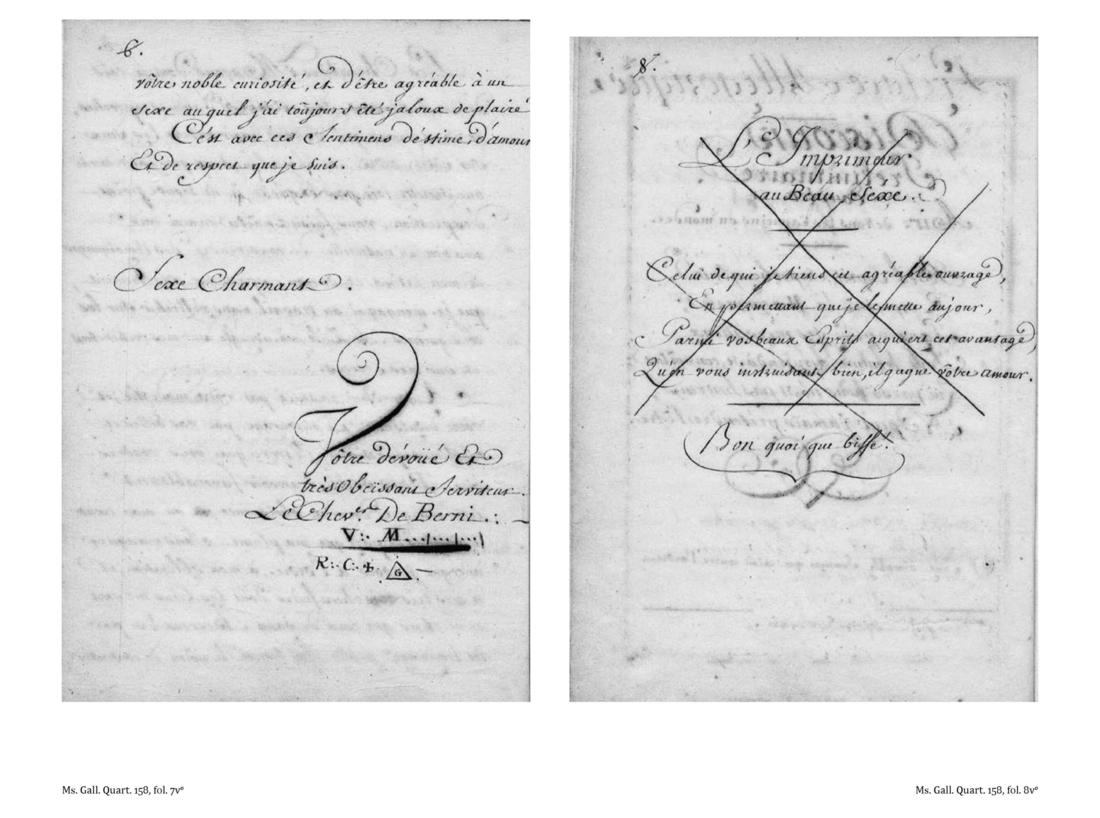 6.
vôtre noble curiosité, et d'être agréable à un
sexe auquel j'ai toûjours été jaloux de plaire
C'est avec ces Sentimens d'éstime, d'amour
Et de respect que je suis.
Sexe Charmant.
Vôtre dévoüé Et
très Obeïssant Serviteur.
Le Chev.er De Berni.:.
V:. M...
R:. C:. +
G
Ms. Gall. Quart. 158, fol. 7vº
8.
L'Imprimeur
au Beau Sexe.
Celui de qui je tiens cet agréable ouvrage,
En permettant que je le mette au jour,
Parmi vos beaux Esprits aquiert cet avantage,
Qu'en vous instruisant bien, il gagne vôtre amour.
Bon quoi que biffé.
Ms. Gall. Quart. 158, fol. 8vº